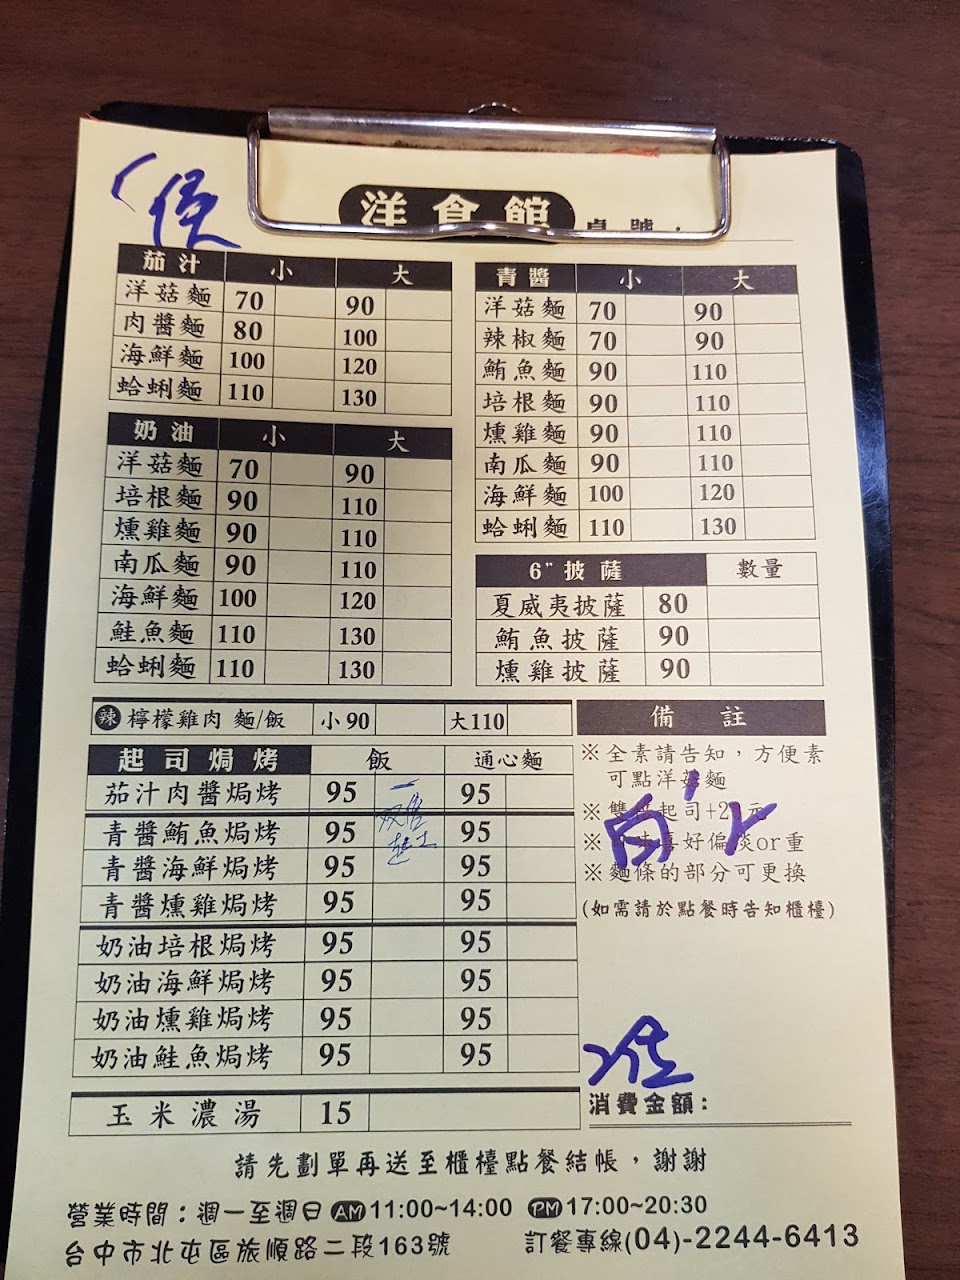 洋食館 桌號：
茄汁 小 大
洋菇麵 70 90
肉醬麵 80 100
海鮮麵 100 120
蛤蜊麵 110 130
奶油 小 大
洋菇麵 70 90
培根麵 90 110
燻雞麵 90 110
南瓜麵 90 110
海鮮麵 100 120
鮭魚麵 110 130
蛤蜊麵 110 130
青醬 小 大
洋菇麵 70 90
辣椒麵 70 90
鮪魚麵 90 110
培根麵 90 110
燻雞麵 90 110
南瓜麵 90 110
海鮮麵 100 120
蛤蜊麵 110 130
6" 披薩 數量
夏威夷披薩 80
鮪魚披薩 90
燻雞披薩 90
辣 檸檬雞肉 麵/飯 小90 大110
起司焗烤 飯 通心麵
茄汁肉醬焗烤 95 一 95
青醬鮪魚焗烤 95 95
青醬海鮮焗烤 95 95
青醬燻雞焗烤 95 95
奶油培根焗烤 95 95
奶油海鮮焗烤 95 95
奶油燻雞焗烤 95 95
奶油鮭魚焗烤 95 95
玉米濃湯 15
備註
※全素請告知，方便素
可點洋菇麵
※雙份起司+2元
※口味喜好偏淡or重
※麵條的部分可更換
(如需請於點餐時告知櫃檯)
消費金額：
請先劃單再送至櫃檯點餐結帳，謝謝
營業時間：週一至週日 AM 11:00~14:00 PM 17:00~20:30
台中市北屯區旅順路二段163號 訂餐專線(04)-2244-6413